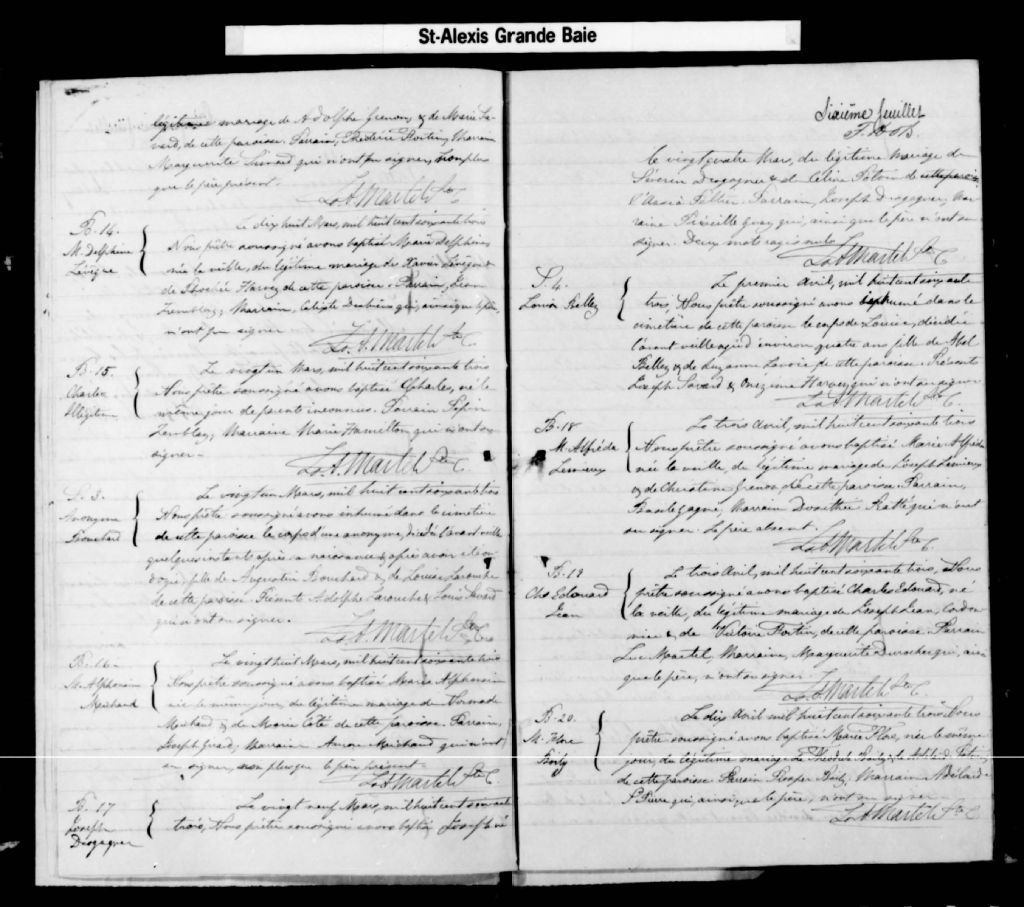 St-Alexis Grande Baie
légitime mariage de Adolphe Grenon, & de Marie Sa-
vard, de cette paroisse. Parrain, Fréderic Fortin, Marraine
Marguerite Simard qui n'ont pu signer, non plus
que le père présent.
Ls A. Martel Ptre
B. 14.
M. Delphine
Lévêque
Le dix huit Mars, mil huit cent soixante trois
Nous prêtre soussigné avons baptisé Marie Delphine,
née la veille, du légitime mariage de Xavier Lévêque &
de Harvey de cette paroisse. Parrain, Jean
Tremblay, Marraine, Céleste qui, ainsi que le père,
n'ont pu signer
Ls A. Martel Ptre C.
B. 15.
Charles
Illégitime
Le vingt un Mars, mil huit cent soixante trois
Nous prêtre soussigné avons baptisé Charles, né le
même jour de parents inconnus. Parrain Pépin
Tremblay, Marraine Marie Hamelton qui n'ont su
signer.
Ls A. Martel Ptre C.
S. 3.
Anonyme
Bouchard
Le vingt un Mars, mil huit cent soixante trois
Nous prêtre soussigné avons inhumé dans le cimetière
de cette paroisse le corps d'une anonyme, décédé l'avant veille
quelques instants après sa naissance & après avoir été on-
doyé, fille de Augustin Bouchard & de Louise Larouche
de cette paroisse. Présents Adolphe Larouche & Louis Savard
qui n'ont su signer.
Ls A. Martel Ptre C.
B. 16.
M. Alphonsine
Michaud
Le vingt huit Mars, mil huit cent soixante trois
Nous prêtre soussigné avons baptisé Marie Alphonsine
née le même jour, du légitime mariage de
Michaud & de Marie Côté de cette paroisse. Parrain,
Joseph Marraine Michaud qui n'ont
su signer, non plus que le père présent.
Ls A. Martel Ptre C.
B. 17
Joseph
Desgagner
Le vingt neuf Mars, mil huit cent soixante
trois, Nous prêtre soussigné avons baptisé Joseph né
Sixième feuillet
le vingt quatre Mars, du légitime mariage de
Séverin Desgagner & de Céline Potvin de cette paroisse
Parrain, Joseph Desgagner, Mar-
raine Guay, qui, ainsi que le père n'ont su
signer. Deux mots rayés nuls.
Ls A. Martel Ptre C.
S. 4.
Louise Belley
Le premier Avril, mil huit cent soixante
trois, Nous prêtre soussigné avons inhumé dans le
cimetière de cette paroisse le corps de Louise, décédée
l'avant veille agée d'environ quatre ans fille de Abel
Belley & de Suzanne Lavoie de cette paroisse. Présents
Joseph Savard & Onézime Harvey qui n'ont su signer
Ls A. Martel Ptre C.
B. 18
M. Alfréda
Lemieux
Le trois Avril, mil huit cent soixante trois
Nous prêtre soussigné avons baptisé Marie Alfréda
née la veille, du légitime mariage de Joseph Lemieux
& de Christine Gagnon, de cette paroisse. Parrain,
Gagné, Marraine Dorothée Ratté qui n'ont
su signer. Le père absent.
Ls A. Martel Ptre C.
B. 19
Chs Edouard
Jean
Le trois Avril, mil huit cent soixante trois, Nous
prêtre soussigné avons baptisé Charles Edouard, né
la veille, du légitime mariage de Joseph Jean, cordon-
nier & de Victoire Fortin, de cette paroisse. Parrain
Luc Martel, Marraine, Marguerite Durocher qui, ainsi
que le père, n'ont su signer.
Ls A. Martel Ptre C.
B. 20.
M. Flore
Boily
Le dix Avril mil huit cent soixante trois Nous
prêtre soussigné avons baptisé Marie Flore, née le même
jour, du légitime mariage de Théodule Boily &
de cette paroisse Parrain Prosper Boily, Marraine Adélaïde
St Pierre qui, ainsi que le père, n'ont su signer
Ls A. Martel Ptre C.